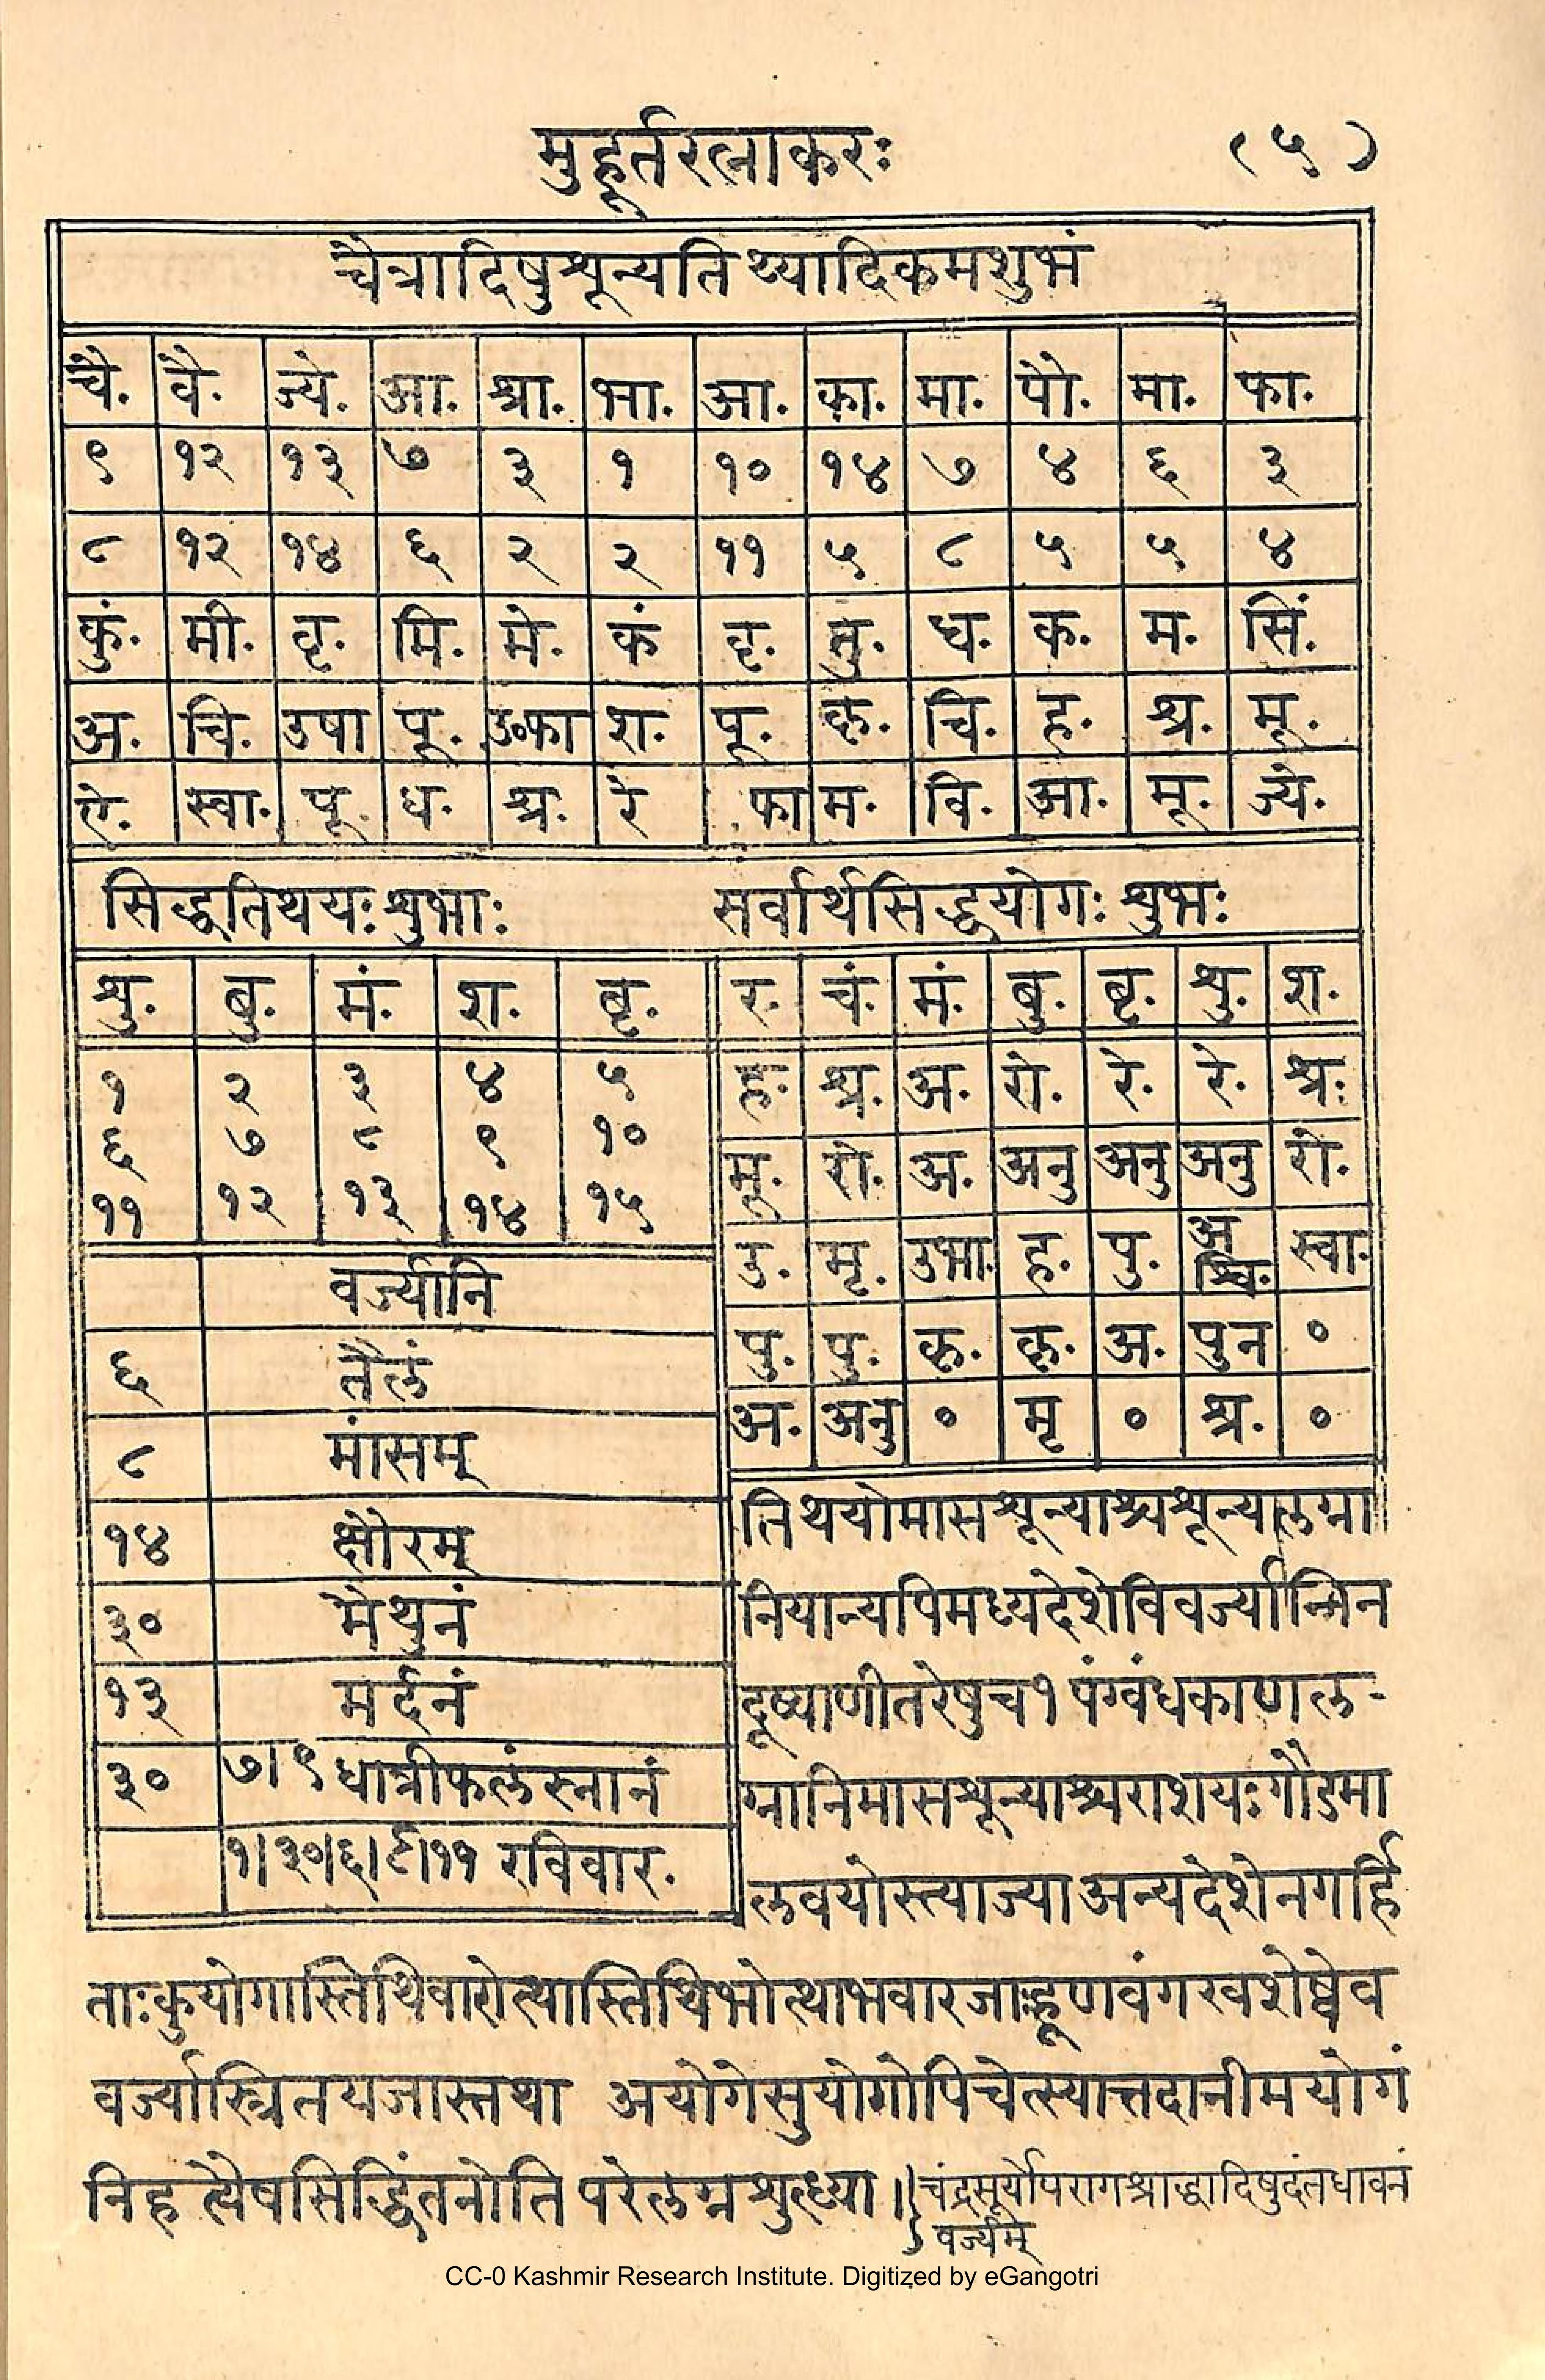 मुहूर्तरत्नाकरः (५)
चैत्रादिषुशून्यतिथ्यादिकमशुभं
चै. वै. ज्ये. आ. श्रा. भा. आ. का. मा. पौ. मा. फा.
९ १२ १३ ७ ३ १ १० १४ ७ ४ ६ ३
८ १२ १४ ६ २ २ ११ ५ ८ ५ ५ ४
कुं. मी. वृ. मि. मे. कं वृ. तु. ध. क. म. सिं.
अ. चि. उषा पू. उ०फा श. पू. कृ. चि. ह. श्र. मू.
रो. स्वा. पू. ध. श्र. रे फा म. वि. आ. मू. ज्ये.
सिद्धतिथयः शुभाः
शु. बु. मं. श. बृ.
१ २ ३ ४ ५
६ ७ ८ ९ १०
११ १२ १३ १४ १५
वर्ज्यानि
६ तैलं
८ मांसम्
१४ क्षौरम्
३० मैथुनं
१३ मर्दनं
३० ७।९ धात्रीफलंस्नानं
१।३०।६।९।११ रविवार.
सर्वार्थसिद्धयोगः शुभः
र. चं. मं. बु. बृ. शु. श.
ह. श्र. अ. रो. रे. रे. श्र.
मू. रो. अ. अनु अनु अनु रो.
उ. मृ. उभा. ह. पु. अश्वि. स्वा.
पु. पु. कृ. कृ. अ. पुन ०
अ. अनु ० मृ ० श्र. ०
तिथयोमासशून्याश्चशून्यलग्ना
नियान्यपिमध्यदेशेविवर्ज्यान्निन
दूष्याणीतरेषुच१ पंग्वंधकाणल-
ग्नानिमासशून्याश्चराशयःगौडमा
लवयोस्त्याज्याअन्यदेशेनगर्हि
ताःकुयोगास्तिथिवारोत्थास्तिथिभोत्थाभवारजाःहूणवंगखशेष्वेव
वर्ज्यास्त्रितयजास्तथा अयोगेसुयोगोपिचेत्स्यात्तदानीमयोगं
निहत्यैषसिद्धिंतनोति परेलग्नशुद्ध्या॥ चंद्रसूर्योपरागश्राद्धादिषुदंतधावनं
वर्ज्यम्
CC-0 Kashmir Research Institute. Digitized by eGangotri